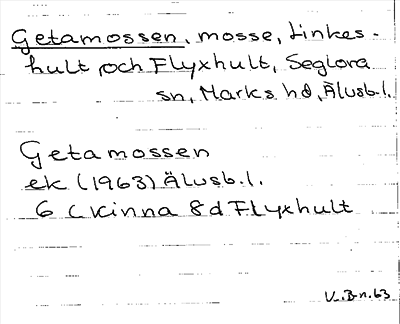 Getamossen, mosse, Linkes-
hult och Flyxhult, Seglora
sn, Marks hd, Älvsb.l.
Getamossen
ek (1963) Älvsb.l.
6 C Kinna 8 d Flyxhult
V.B-n.63